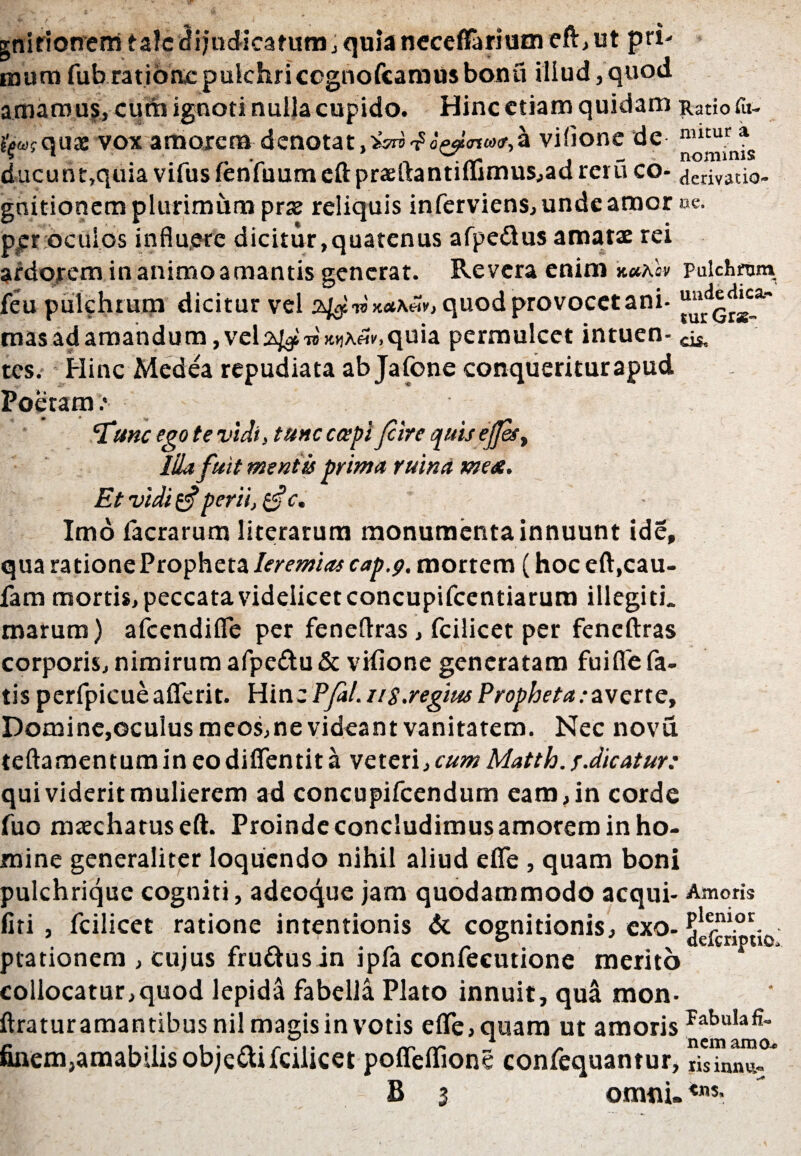 gnitionem tale dijudicatum, quia necessarium est, ut pri-
mum sub ratione pulchri cognoscamus bonũ illud, quod
amamus, cum ignoti nulla cupido. Hinc etiam quidam
Ratio su-
mitur a
nominis
derivatio-
ne.
ἔρως quæ vox amorem denotat, ἀπὸ τ ὁράσεως, à visione de-
ducunt, quia visus sensuum est præstantissimus, ad rerũ co-
gnitionem plurimùm præ reliquis inserviens, unde amor
per oculos influere dicitur, quatenus aspectus amatæ rei
ardorem in animo amantis generat. Revera enim καλὸν
Pulchrum
unde dica-
tur Græ-
cis.
seu pulchrum dicitur vel διὰ τὸ καλεῖν, quod provocet ani-
mas ad amandum, vel διὰ τὸ κηλεῖν, quia permulcet intuen-
tes. Hinc Medéa repudiata ab Jasone conqueritur apud
Poëtam:
Tunc ego te vidi, tunc cœpi scire quis esses,
Illa fuit mentis prima ruina meæ.
Et vidi & perii, &c.
Imò sacrarum literarum monumenta innuunt idẽ,
qua ratione Propheta Ieremias cap.9. mortem (hoc est, cau-
sam mortis, peccata videlicet concupiscentiarum illegiti-
marum) ascendisse per fenestras, scilicet per fenestras
corporis, nimirum aspectu & visione generatam fuisse sa-
tis perspicuè asserit. Hinc Psal. 118. regius Propheta: averte,
Domine, oculus meos, ne videant vanitatem. Nec novũ
testamentum in eo dissentit à veteri, cum Matth. 5. dicatur:
qui viderit mulierem ad concupiscendum eam, in corde
suo mæchatus est. Proinde concludimus amorem in ho-
mine generaliter loquendo nihil aliud esse, quam boni
pulchrique cogniti, adeoque jam quodammodo acqui-
Amoris
plenior
descriptio.
siti, scilicet ratione intentionis & cognitionis, exo-
ptationem, cujus fructus in ipsa consecutione meritò
collocatur, quod lepidâ fabellâ Plato innuit, quâ mon-
stratur amantibus nil magis in votis esse, quam ut amoris
Fabula fi-
nem amo-
ris innu-
ens.
finem, amabilis objecti scilicet possessionẽ consequantur,
B 3
omni-